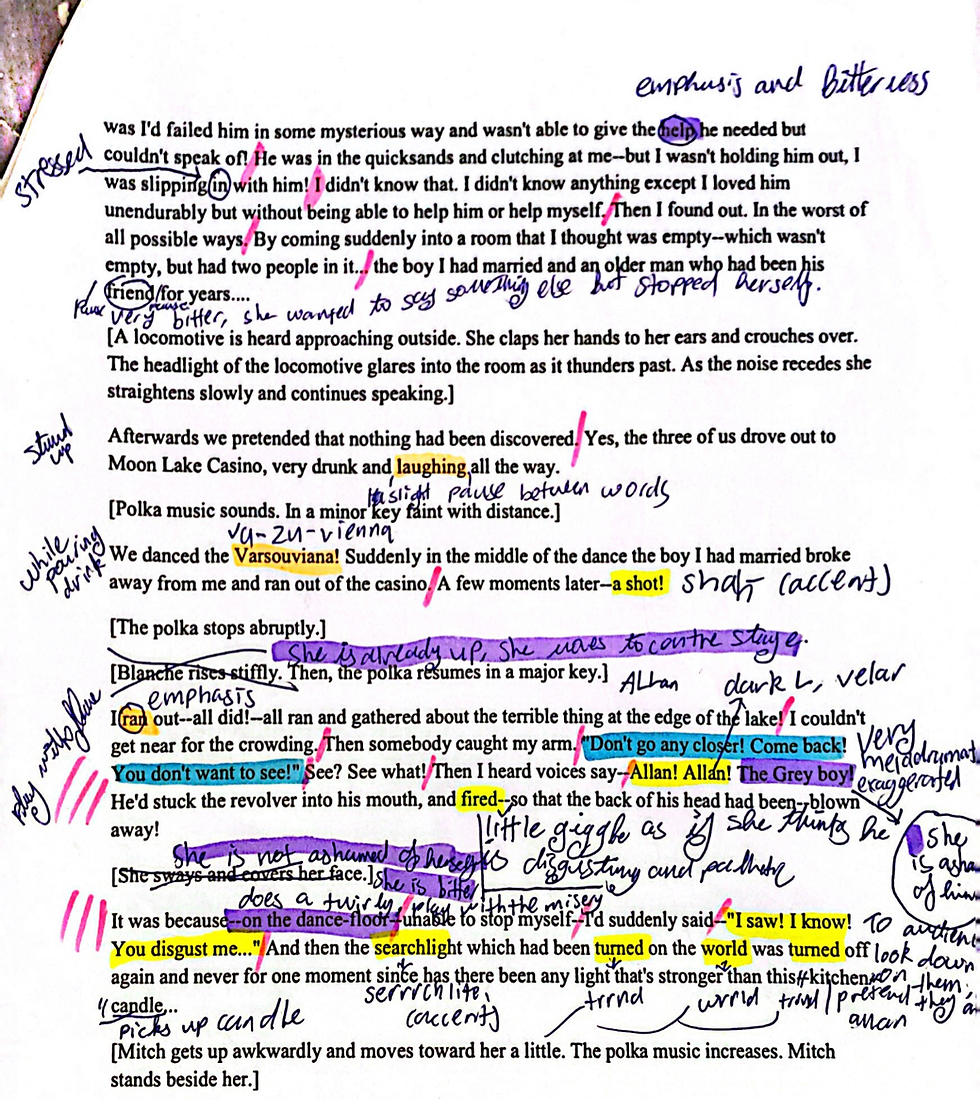 emphasis and Bitterness
was I'd failed him in some mysterious way and wasn't able to give the help he needed but
couldn't speak of! He was in the quicksands and clutching at me--but I wasn't holding him out, I
stressed
was slipping in with him! I didn't know that. I didn't know anything except I loved him
unendurably but without being able to help him or help myself. Then I found out. In the worst of
all possible ways. By coming suddenly into a room that I thought was empty--which wasn't
empty, but had two people in it... the boy I had married and an older man who had been his
friend/for years....
Pause very bitter, she wanted to say something else but stopped herself.
pause
[A locomotive is heard approaching outside. She claps her hands to her ears and crouches over.
The headlight of the locomotive glares into the room as it thunders past. As the noise recedes she
straightens slowly and continues speaking.]
stand up
Afterwards we pretended that nothing had been discovered. Yes, the three of us drove out to
Moon Lake Casino, very drunk and laughing all the way.
slight pause between words
[Polka music sounds. In a minor key faint with distance.]
va-zu-vienna
while pouring drink
We danced the Varsouviana! Suddenly in the middle of the dance the boy I had married broke
away from me and ran out of the casino. A few moments later--a shot! shah (accent)
[The polka stops abruptly.]
She is already up, she moves to centre stage.
[Blanche rises stiffly. Then, the polka resumes in a major key.] Allan dark L, velar
emphasis
I ran out--all did!--all ran and gathered about the terrible thing at the edge of the lake! I couldn't
get near for the crowding. Then somebody caught my arm. "Don't go any closer! Come back!
You don't want to see!" See? See what! Then I heard voices say--Allan! Allan! The Grey boy!
very melodramatic exaggerated
He'd stuck the revolver into his mouth, and fired--so that the back of his head had been--blown
away!
little giggle as if she thinks he is disgusting and pathetic
she is of him
She is not ashamed of herself
[She sways and covers her face.] She is bitter
does a twirly with the misery
It was because--on the dance-floor--unable to stop myself--I'd suddenly said--"I saw! I know!
You disgust me..." And then the searchlight which had been turned on the world was turned off
To look down on them, pretend they Allan
again and never for one moment since has there been any light that's stronger than this kitchen
candle...
serrrchlite (accent)
trrnd
wrrld
trrnd
picks up candle
[Mitch gets up awkwardly and moves toward her a little. The polka music increases. Mitch
stands beside her.]